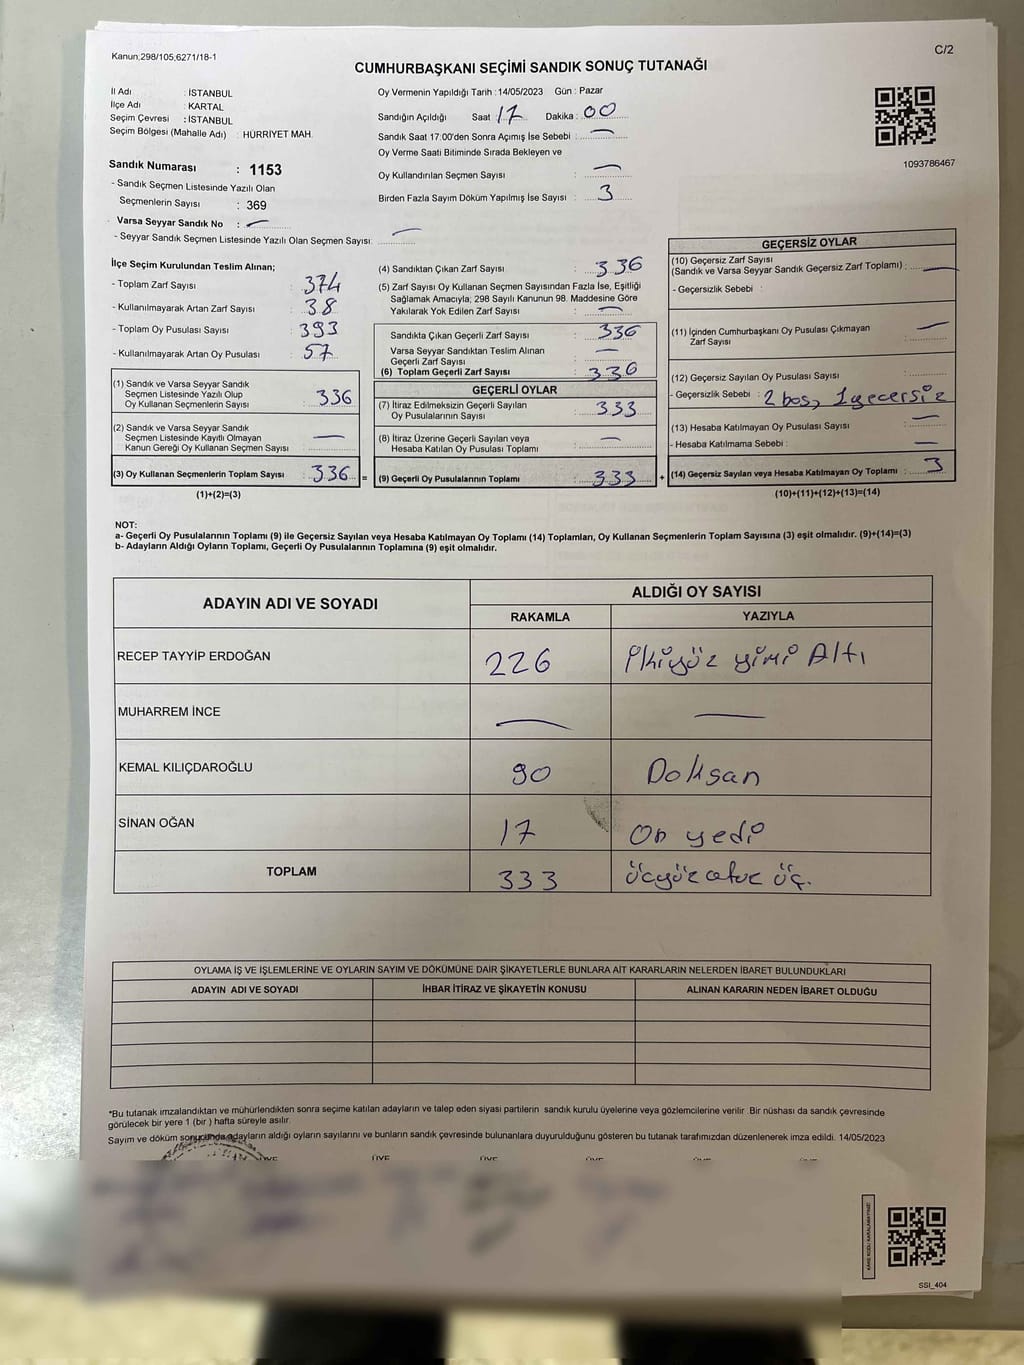 Kanun;298/105;6271/18-1
C/2
CUMHURBAŞKANI SEÇİMİ SANDIK SONUÇ TUTANAĞI
İl Adı : İSTANBUL
İlçe Adı : KARTAL
Seçim Çevresi : İSTANBUL
Seçim Bölgesi (Mahalle Adı) : HÜRRİYET MAH.
Sandık Numarası : 1153
- Sandık Seçmen Listesinde Yazılı Olan
Seçmenlerin Sayısı : 369
Varsa Seyyar Sandık No : —
- Seyyar Sandık Seçmen Listesinde Yazılı Olan Seçmen Sayısı: —
Oy Vermenin Yapıldığı Tarih :14/05/2023 Gün : Pazar
Sandığın Açıldığı Saat 17 Dakika : 00
Sandık Saat 17:00'den Sonra Açımış İse Sebebi : —
Oy Verme Saati Bitiminde Sırada Bekleyen ve
Oy Kullandırılan Seçmen Sayısı : —
Birden Fazla Sayım Döküm Yapılmış İse Sayısı : 3
1093786467
İlçe Seçim Kurulundan Teslim Alınan;
- Toplam Zarf Sayısı : 374
- Kullanılmayarak Artan Zarf Sayısı : 38
- Toplam Oy Pusulası Sayısı : 393
- Kullanılmayarak Artan Oy Pusulası : 57
(1) Sandık ve Varsa Seyyar Sandık
Seçmen Listesinde Yazılı Olup
Oy Kullanan Seçmenlerin Sayısı : 336
(2) Sandık ve Varsa Seyyar Sandık
Seçmen Listesinde Kayıtlı Olmayan
Kanun Gereği Oy Kullanan Seçmen Sayısı : —
(3) Oy Kullanan Seçmenlerin Toplam Sayısı : 336 =
(1)+(2)=(3)
(4) Sandıktan Çıkan Zarf Sayısı : 336
(5) Zarf Sayısı Oy Kullanan Seçmen Sayısından Fazla İse, Eşitliği
Sağlamak Amacıyla; 298 Sayılı Kanunun 98. Maddesine Göre
Yakılarak Yok Edilen Zarf Sayısı : —
Sandıkta Çıkan Geçerli Zarf Sayısı : 336
Varsa Seyyar Sandıktan Teslim Alınan
Geçerli Zarf Sayısı : —
(6) Toplam Geçerli Zarf Sayısı : 336
GEÇERLİ OYLAR
(7) İtiraz Edilmeksizin Geçerli Sayılan
Oy Pusulalarının Sayısı : 333
(8) İtiraz Üzerine Geçerli Sayılan veya
Hesaba Katılan Oy Pusulası Toplamı : —
(9) Geçerli Oy Pusulalarının Toplamı : 333 +
GEÇERSİZ OYLAR
(10) Geçersiz Zarf Sayısı
(Sandık ve Varsa Seyyar Sandık Geçersiz Zarf Toplamı) : —
- Geçersizlik Sebebi :
(11) İçinden Cumhurbaşkanı Oy Pusulası Çıkmayan
Zarf Sayısı : —
(12) Geçersiz Sayılan Oy Pusulası Sayısı :
- Geçersizlik Sebebi : 2 boş, 1 geçersiz
(13) Hesaba Katılmayan Oy Pusulası Sayısı : —
- Hesaba Katılmama Sebebi : —
(14) Geçersiz Sayılan veya Hesaba Katılmayan Oy Toplamı : 3
(10)+(11)+(12)+(13)=(14)
NOT:
a- Geçerli Oy Pusulalarının Toplamı (9) ile Geçersiz Sayılan veya Hesaba Katılmayan Oy Toplamı (14) Toplamları, Oy Kullanan Seçmenlerin Toplam Sayısına (3) eşit olmalıdır. (9)+(14)=(3)
b- Adayların Aldığı Oyların Toplamı, Geçerli Oy Pusulalarının Toplamına (9) eşit olmalıdır.
ADAYIN ADI VE SOYADI
ALDIĞI OY SAYISI
RAKAMLA YAZIYLA
RECEP TAYYİP ERDOĞAN 226 İkiyüz yirmi Altı
MUHARREM İNCE — —
KEMAL KILIÇDAROĞLU 90 Doksan
SİNAN OĞAN 17 On yedi
TOPLAM 333 üçyüz otuz üç.
OYLAMA İŞ VE İŞLEMLERİNE VE OYLARIN SAYIM VE DÖKÜMÜNE DAİR ŞİKAYETLERLE BUNLARA AİT KARARLARIN NELERDEN İBARET BULUNDUKLARI
ADAYIN ADI VE SOYADI İHBAR İTİRAZ VE ŞİKAYETİN KONUSU ALINAN KARARIN NEDEN İBARET OLDUĞU
*Bu tutanak imzalandıktan ve mühürlendikten sonra seçime katılan adayların ve talep eden siyasi partilerin sandık kurulu üyelerine veya gözlemcilerine verilir. Bir nüshası da sandık çevresinde
görülecek bir yere 1 (bir ) hafta süreyle asılır.
Sayım ve döküm sonucunda adayların aldığı oyların sayılarını ve bunların sandık çevresinde bulunanlara duyurulduğunu gösteren bu tutanak tarafımızdan düzenlenerek imza edildi. 14/05/2023
ÜYE ÜYE ÜYE ÜYE
SSI_404